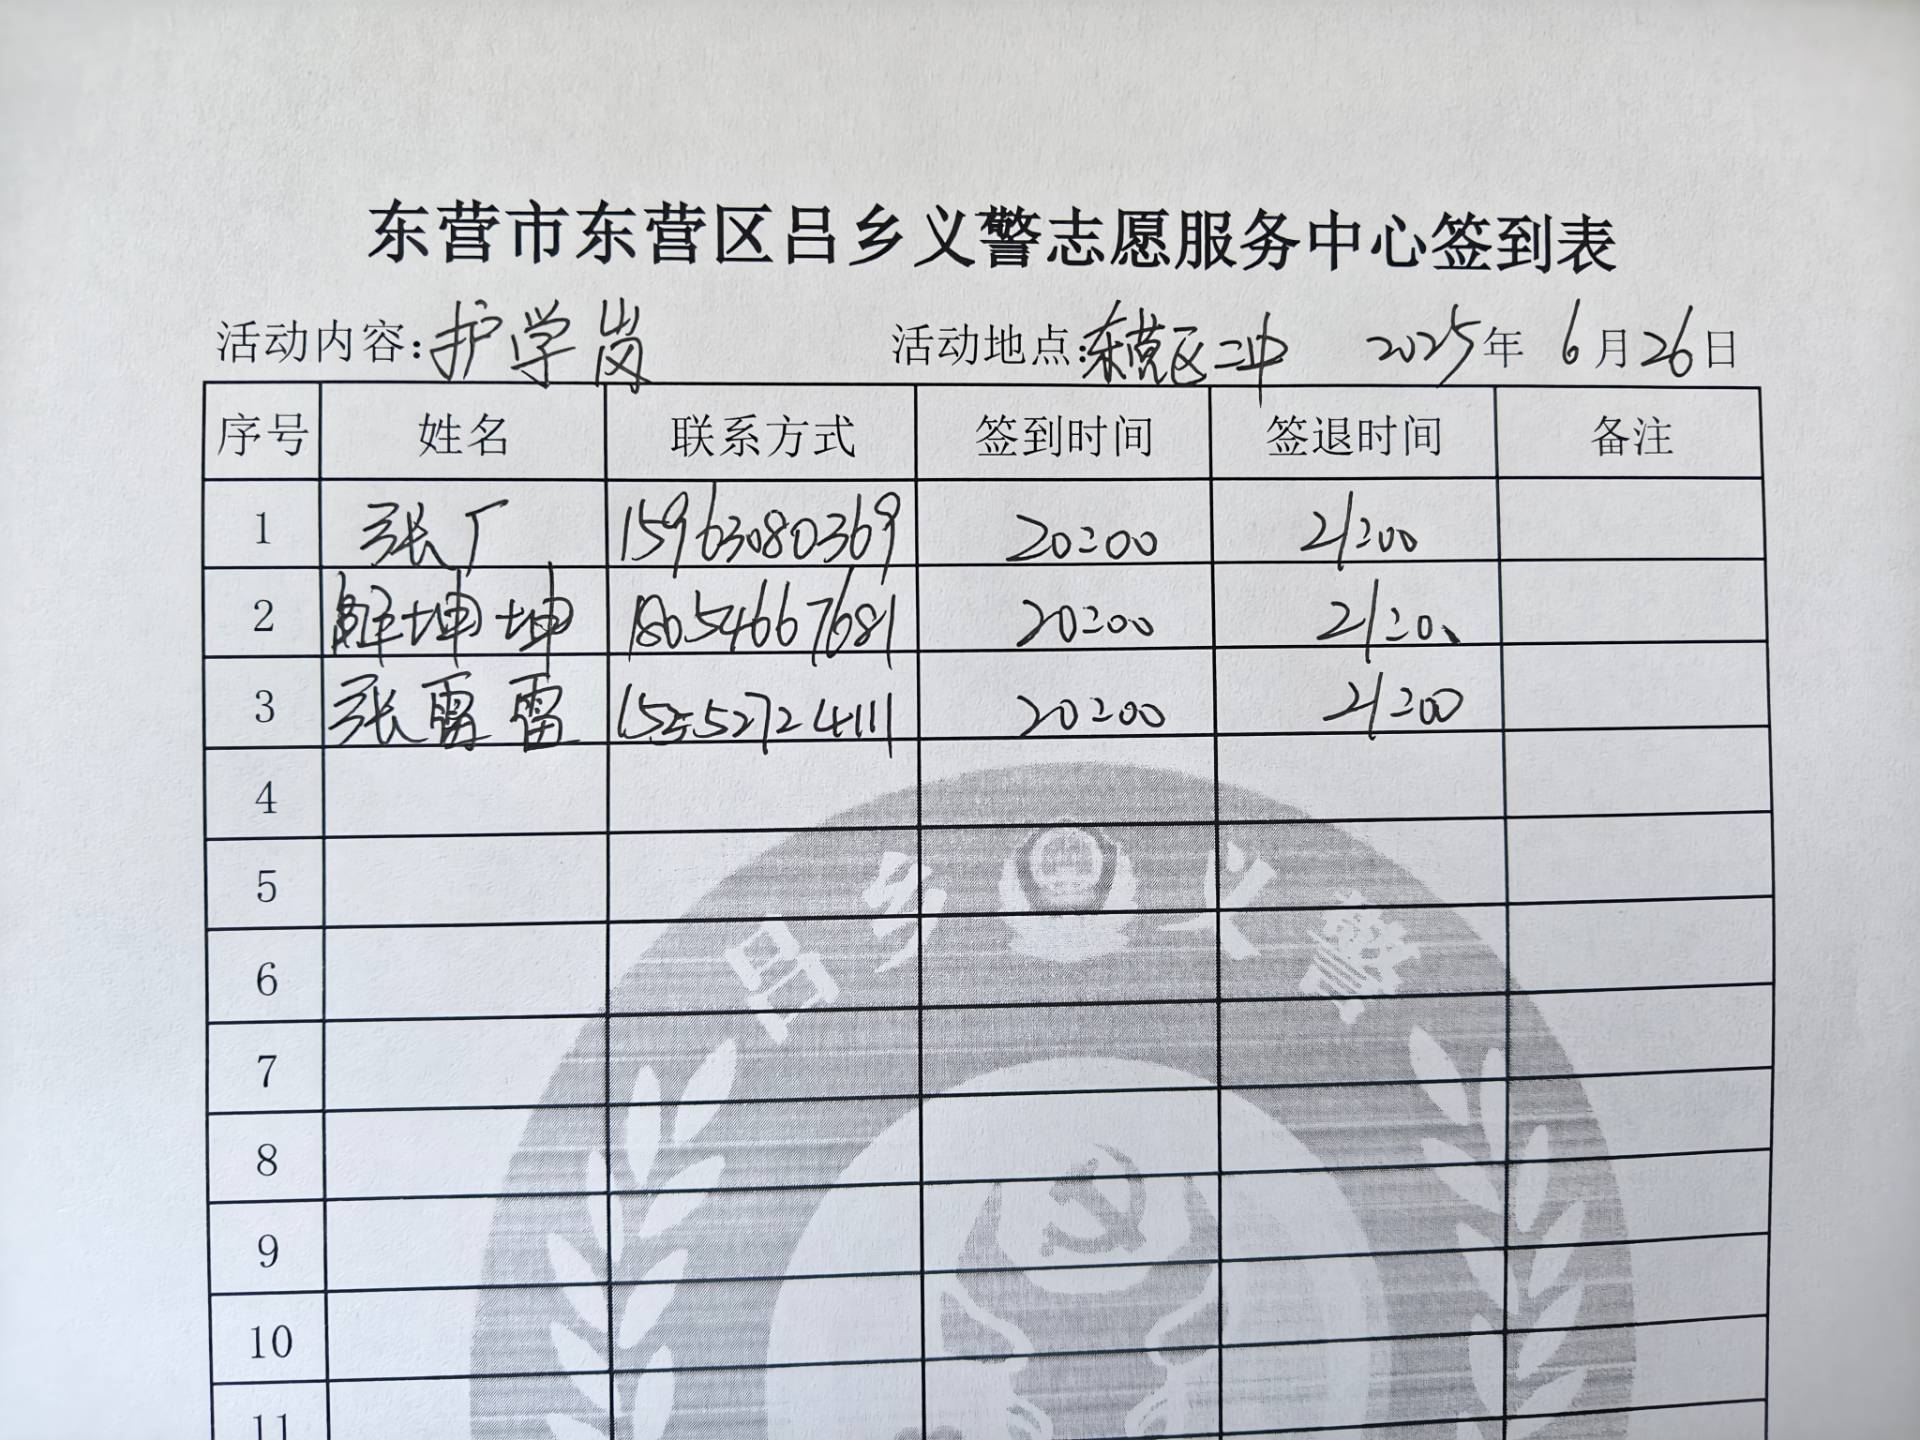 东营市东营区吕乡义警志愿服务中心签到表
活动内容:护学岗 活动地点:东营区二中 2025年 6月26日
序号 姓名 联系方式 签到时间 签退时间 备注
1 张厂 15963080369 20:00 21:00
2 坤坤 18654667681 20:00 21:00
3 张雷雷 15552724111 20:00 21:00
4
吕乡义警
5
6
7
8
9
10
11